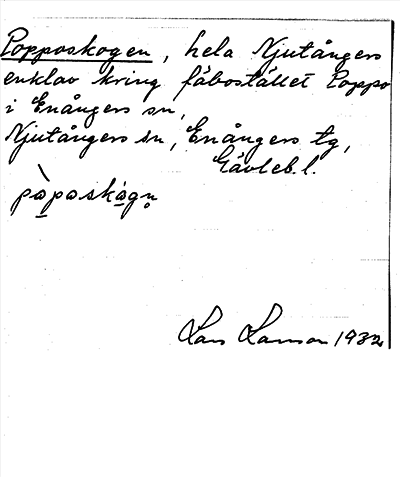 Popposkogen, hela Njutångers
enklav kring fäbostället Poppo
i Enångers sn,
Njutångers sn, Enångers tg,
Gävleb.l.
pòposkógn̥
Lars Larsson 1932